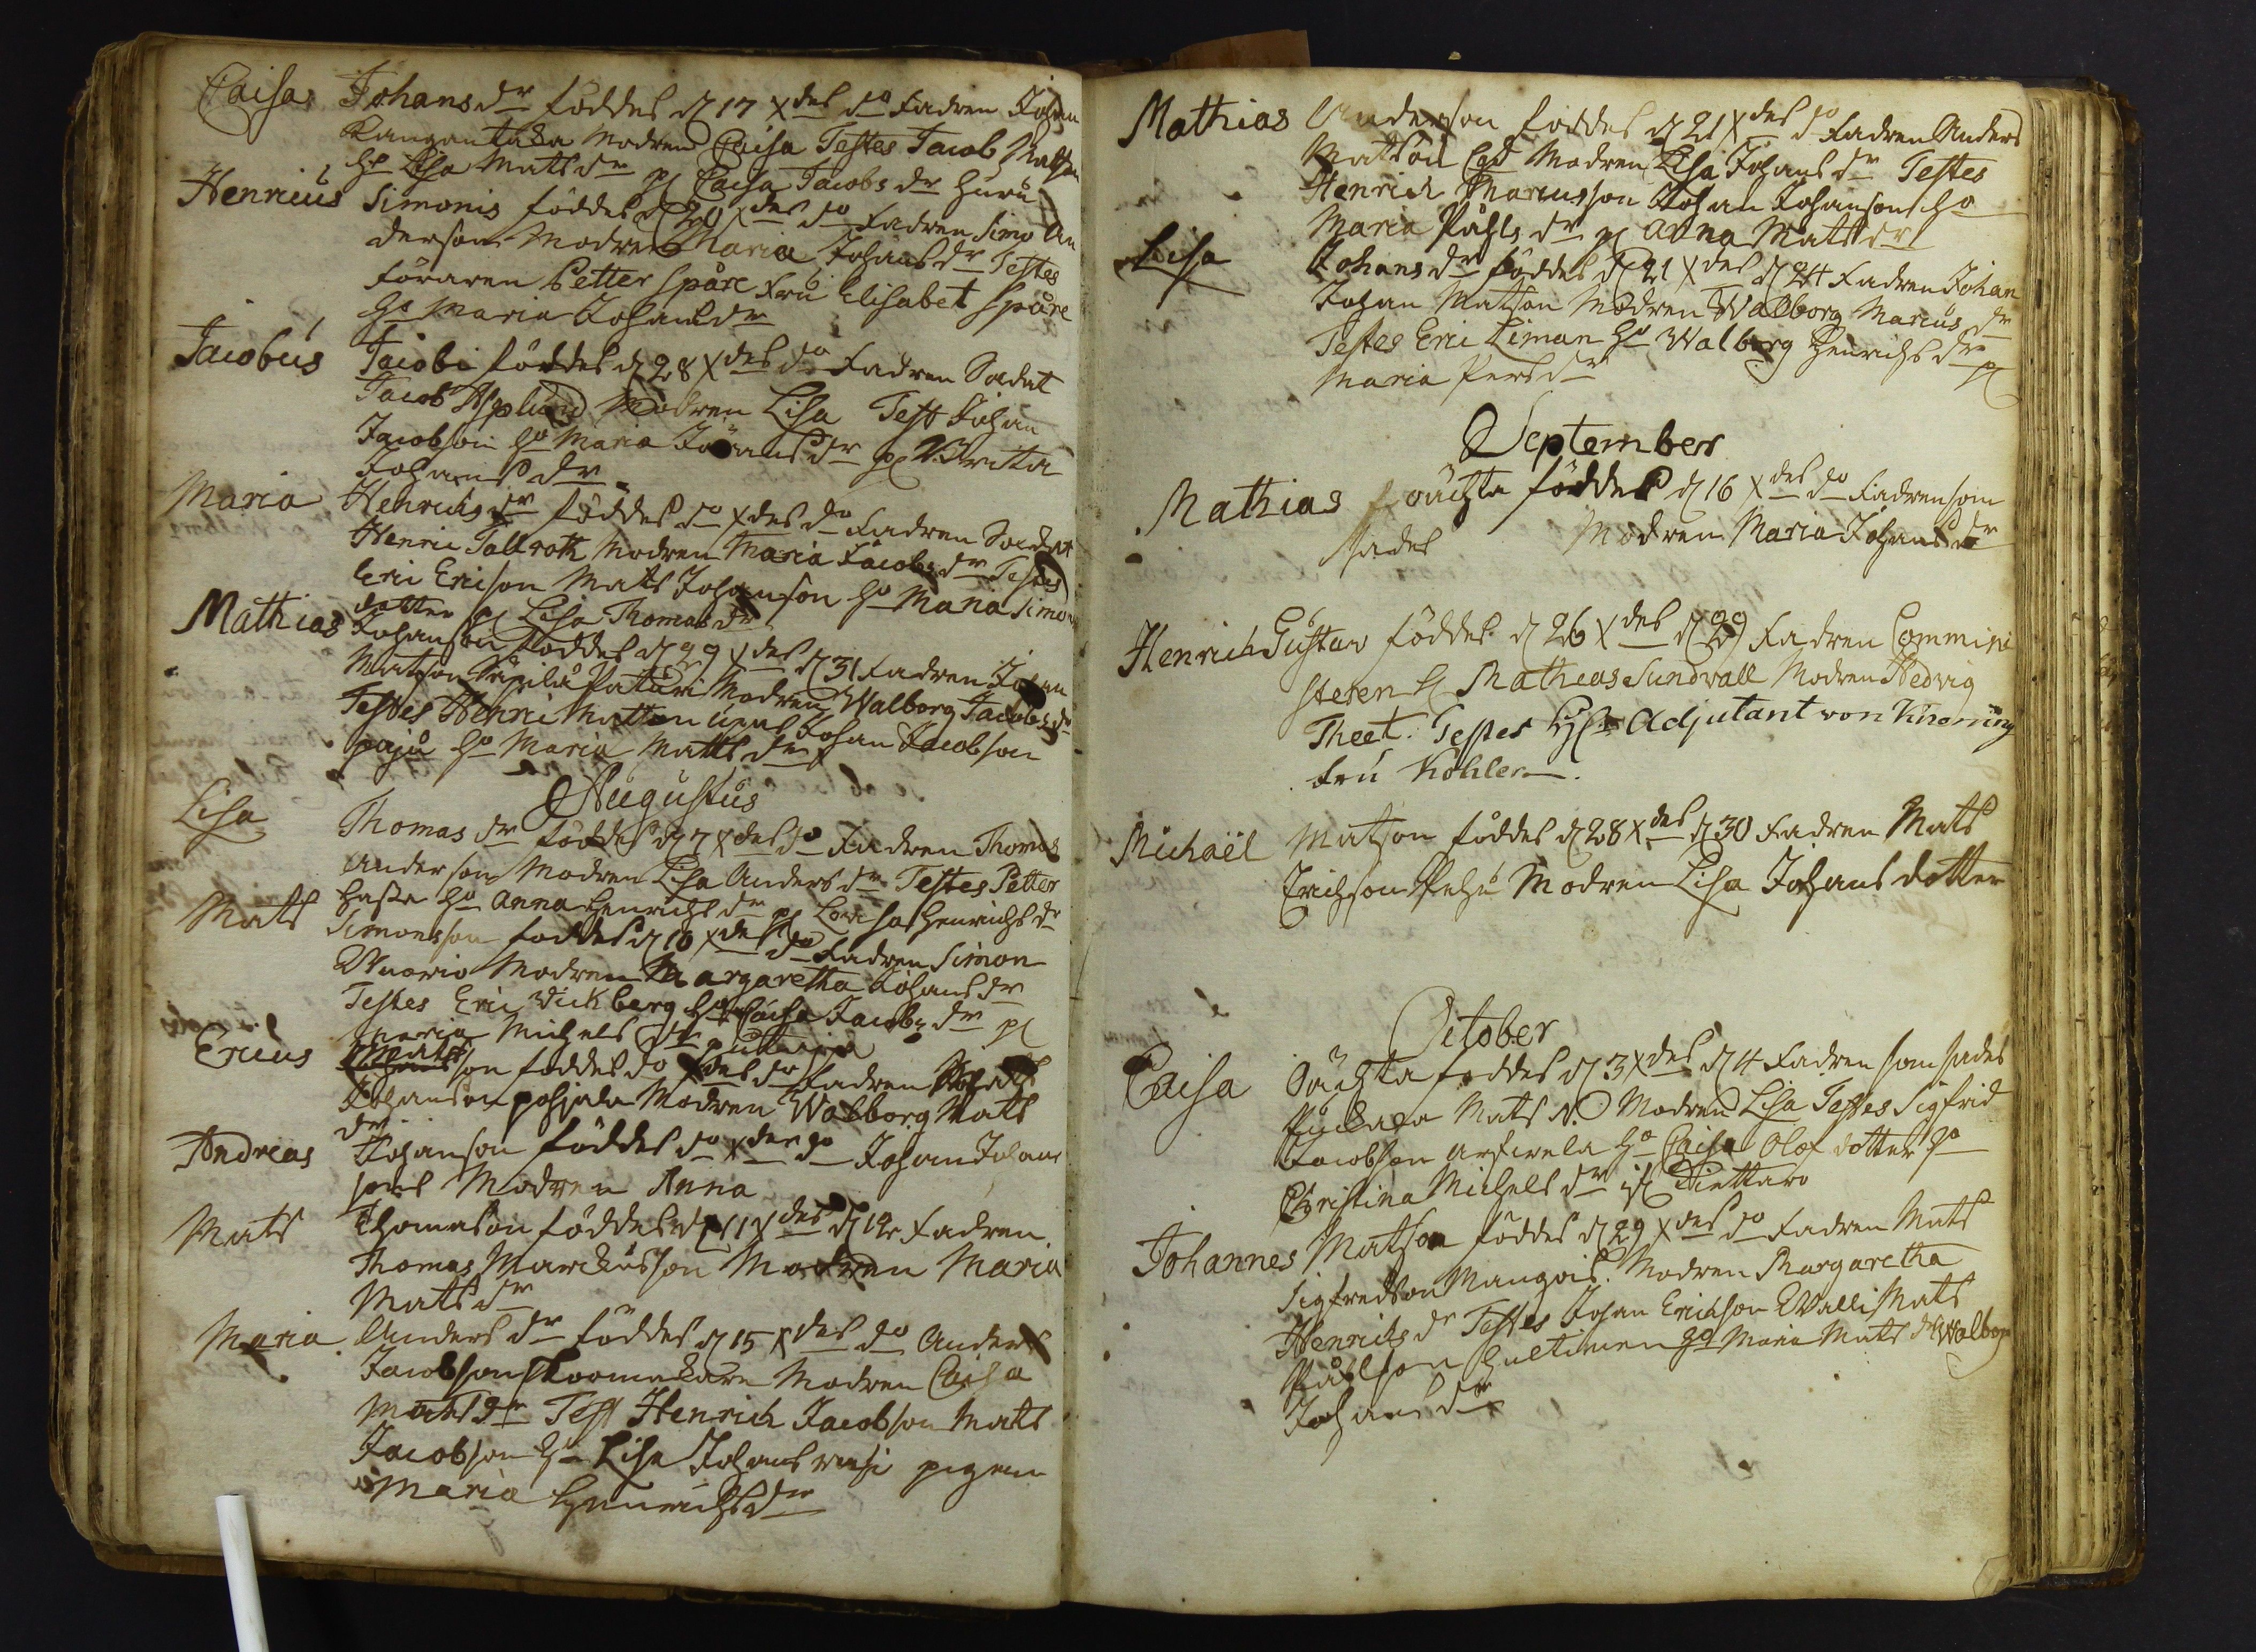 Caisa Johans dr föddes d 17 Xdes do Fadren Johan
Kangantaka Modren Caisa Testes Jacob Matson
ho Lisa Mats dr pj Caisa Jacobs dr
Henricus Simonis föddes d 20 Xdes do Fadren Simo An
derson Modren Maria Johans dr Testes
föraren Petter Spåre Fru Elisabet Spåre
ho Maria Johans dr
Jacobus Jacobi föddes d 28 Xdes do Fadren Soldat
Jacob Asplund Modren Lisa Test Johan
Jacobson ho Maria dr pj Brita
Johans dr
Maria Henrichs dr föddes do Xdes do Fadren Soldat
Henric Tallroth Modren Maria Jacobs dr Testes
Eric Ericson Mats Johanson ho Maria Simons
dotter pj Lisa Thomas dr
Mathias Johanson föddes d 29 Xdes d 31 Fadren Johan
Matson Modren Walborg Jacobs dr
Testes Henric Matson Johan Jacobson
ho Maria Matts dr
Augustus
Lisa Thomas dr föddes d 7 Xdes do Fadren Thomas
Anderson Modren Lisa Anders dr Testes Petter
ho Anna Henrichs dr pj Lovisa Henrichs dr
Mats Simonsson föddes d 10 Xdes do Fadren Simon
Wuorio Modren Margaretha Johans dr
Testes Eric Wickberg ho Caisa Jacobs dr pj
Maria Michels dr
Ericus Matsson föddes do Xdes do Fadren
Johanson pohjala Modren Walborg Mats
dr
Andreas Johanson föddes do Xdes do Johan Johans
son Modren Anna
Mats Thomason föddes d 11 Xdes d 12 Fadren
Thomas Marckusson Modren Maria
Mats dr
Maria Anders dr föddes d 15 Xdes do Anders
Jacobson Modren Caisa
Mats dr Test Henrich Jacobson Mats
Jacobson ho Lisa Johans pigan
Maria Henrichs dr
Mathias Anderson föddes d 21 Xdes do Fadren Anders
Matson Modren Lisa Johans dr Testes
Henrich Marcusson Johan Johanson ho
Maria Påhls dr pj Anna Mats dr
Lisa Johans dr föddes d 21 Xdes d 24 Fadren Johan
Johan Matson Modren Walborg Marcus dr
Testes Eric Liman ho Walborg Henrichs dr pj
Maria Pers dr
September
Mathias oächta föddes d 16 Xdes do Fadren som
sades Modren Maria Johans dr
Henrich Gustav föddes d 26 Xdes d 29 Fadren Commini
steren H Mathias Sundwall Modren Hedvig
Theet. Testes Adjutant von Knorring
Fru Köhler
Michaël Matson föddes d 28 Xdes d 30 Fadren Mats
Erichson Modren Lisa Johans dotter
October
Caisa Oächta föddes d 3 Xdes d 4 Fadren som sades
Mats N. Modren Lisa Testes Sigfrid
Jacobson ho Caisa Olof dotter ho
Christina Michels dr
Johannes Matson föddes d 29 Xdes do Fadren Mats
Sigfredson Mangois. Modren Margaretha
Henrichs dr Testes Johan Erickson Walli Mats
Påhlson ho Maria Mats dr Walborg
Johans dr